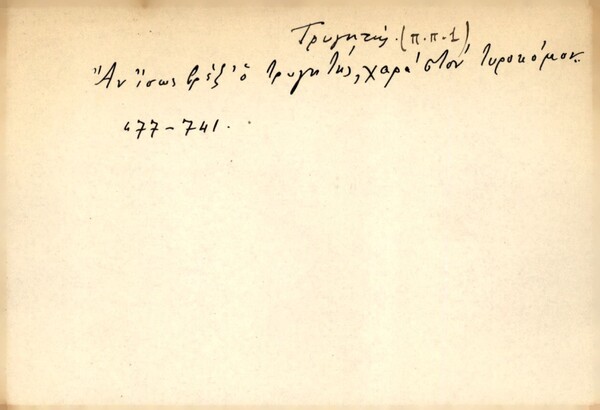 Τρυγητής. (π.π.1)
Ἂν ἴσως βρέξ' ὁ τρυγητής, χαρά 'στον τυροκόμον.
477-741.